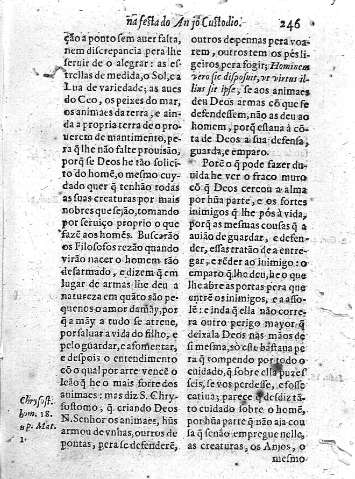 na festa do Anjo Custodio. 246
ção a ponto sem auer falta,
nem discrepancia pera lhe
seruir de o alegrar: as es-
trellas de medida, o Sol, e a
Lua de variedade; as aues
do Ceo, os peixes do mar,
os animaes da terra, e ain-
da a propria terra de o pro-
uerem de mantimento, pe-
ra q̃ lhe não falte prouisão,
porq̃ se Deos he tão solici-
to do homẽ, o mesmo cuy-
dado quer q̃ tenhão todas
as suas creaturas por mais
nobres que sejão, tomando
por seruiço proprio o que
fazẽ aos homẽs. Buscarão
os Filosofos rezão quando
virão nacer o homem tão
desarmado, e dizem q̃ em
lugar de armas lhe deu a
natureza em quãto são pe-
quenos o amor da mãy, por
q̃ a mãy a tudo se atreue,
por saluar a vida do filho, e
pelo guardar, e afomentar,
e despois o entendimento
cõ o qual por arte vence o
leão q̃ he o mais forte dos
animaes: mas diz S. Chry-
sostomo, q̃ criando Deos
N. Senhor os animaes, hũs
armou de vnhas, outros de
pontas, pera se defenderẽ,
Chrysost.
hom. 18.
Mat.
1.
outros de pennas pera voa-
rem, outros tem os pès li-
geiros pera fogir; Hominem
vero sic disposuit, vt virtus il-
lius sit ipse, se aos animaes
deu Deos armas cõ que se
defendessem, não as deu ao
homem, porq̃ estaua à cõ-
ta de Deos a sua defensa,
guarda, e emparo.
Porẽ o q̃ pode fazer du-
uida he ver o fraco muro
cõ q̃ Deos cercou a alma
por hũa parte, e os fortes
inimigos q̃ lhe pòs à vida,
porq̃ as mesmas cousas q̃ a
auião de guardar, e defen-
der, essas tratão de a entre-
gar, e rẽder ao inimigo: o
emparo q̃ lhe deu, he o que
lhe abre as portas pera que
entrẽ os inimigos, e a asso-
lẽ: e inda q̃ ella não corre-
ra outro perigo mayor q̃
deixala Deos nas mãos de
si mesma, sò este bastaua pe
ra q̃ rompendo por todo o
cuidado, q̃ sobre ella puzes
seis, se vos perdesse, e fosse
catiua; parece q̃ desdiz tã-
to cuidado sobre o homẽ,
por hũa parte q̃ não aja cou
sa q̃ se não empregue nelle,
as creaturas, os Anjos, o
mesmo